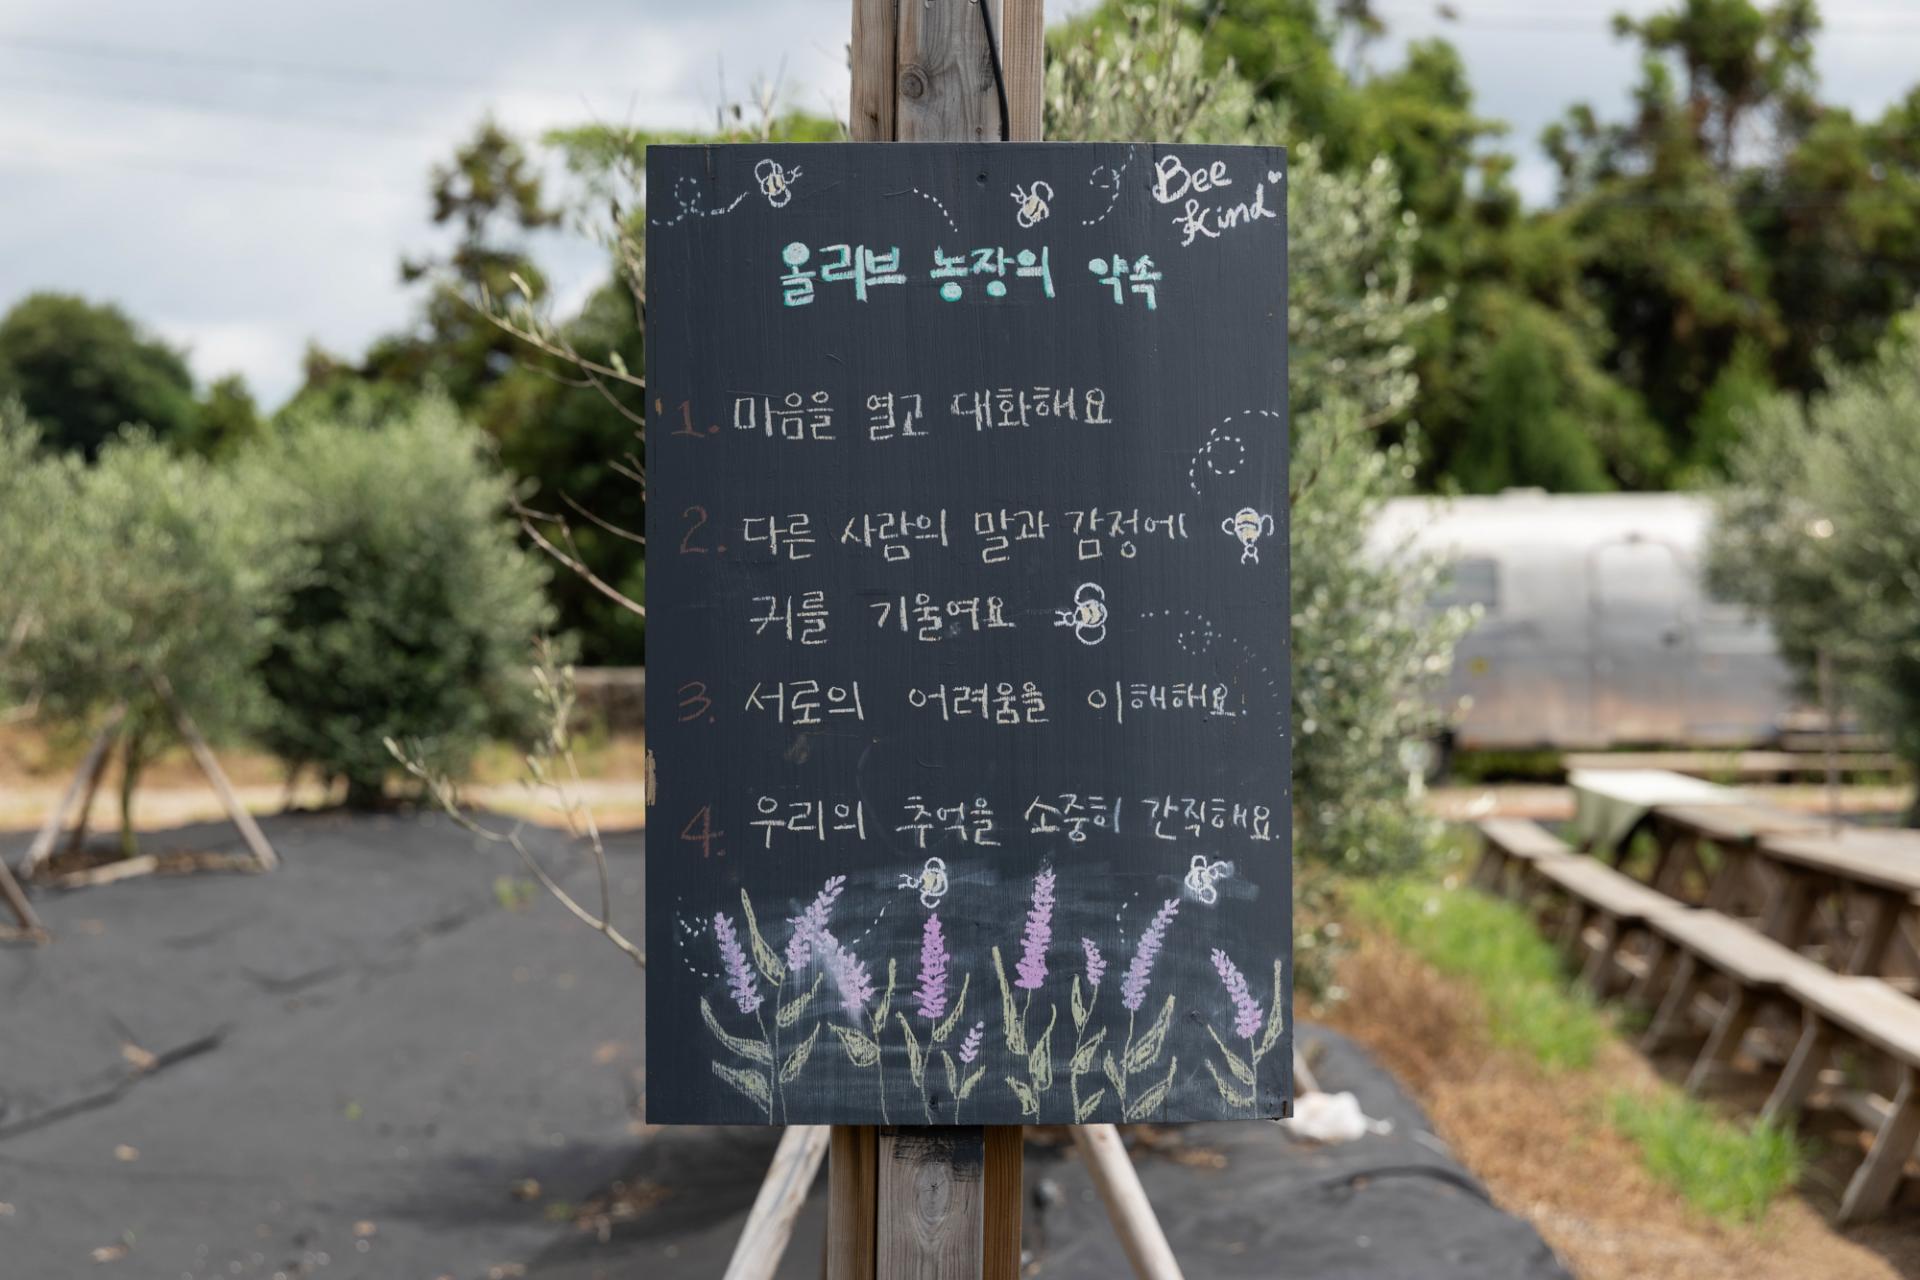 Bee
Kind
올리브 농장의 약속
1. 마음을 열고 대화해요
2. 다른 사람의 말과 감정에
귀를 기울여요
3. 서로의 어려움을 이해해요.
4. 우리의 추억을 소중히 간직해요.